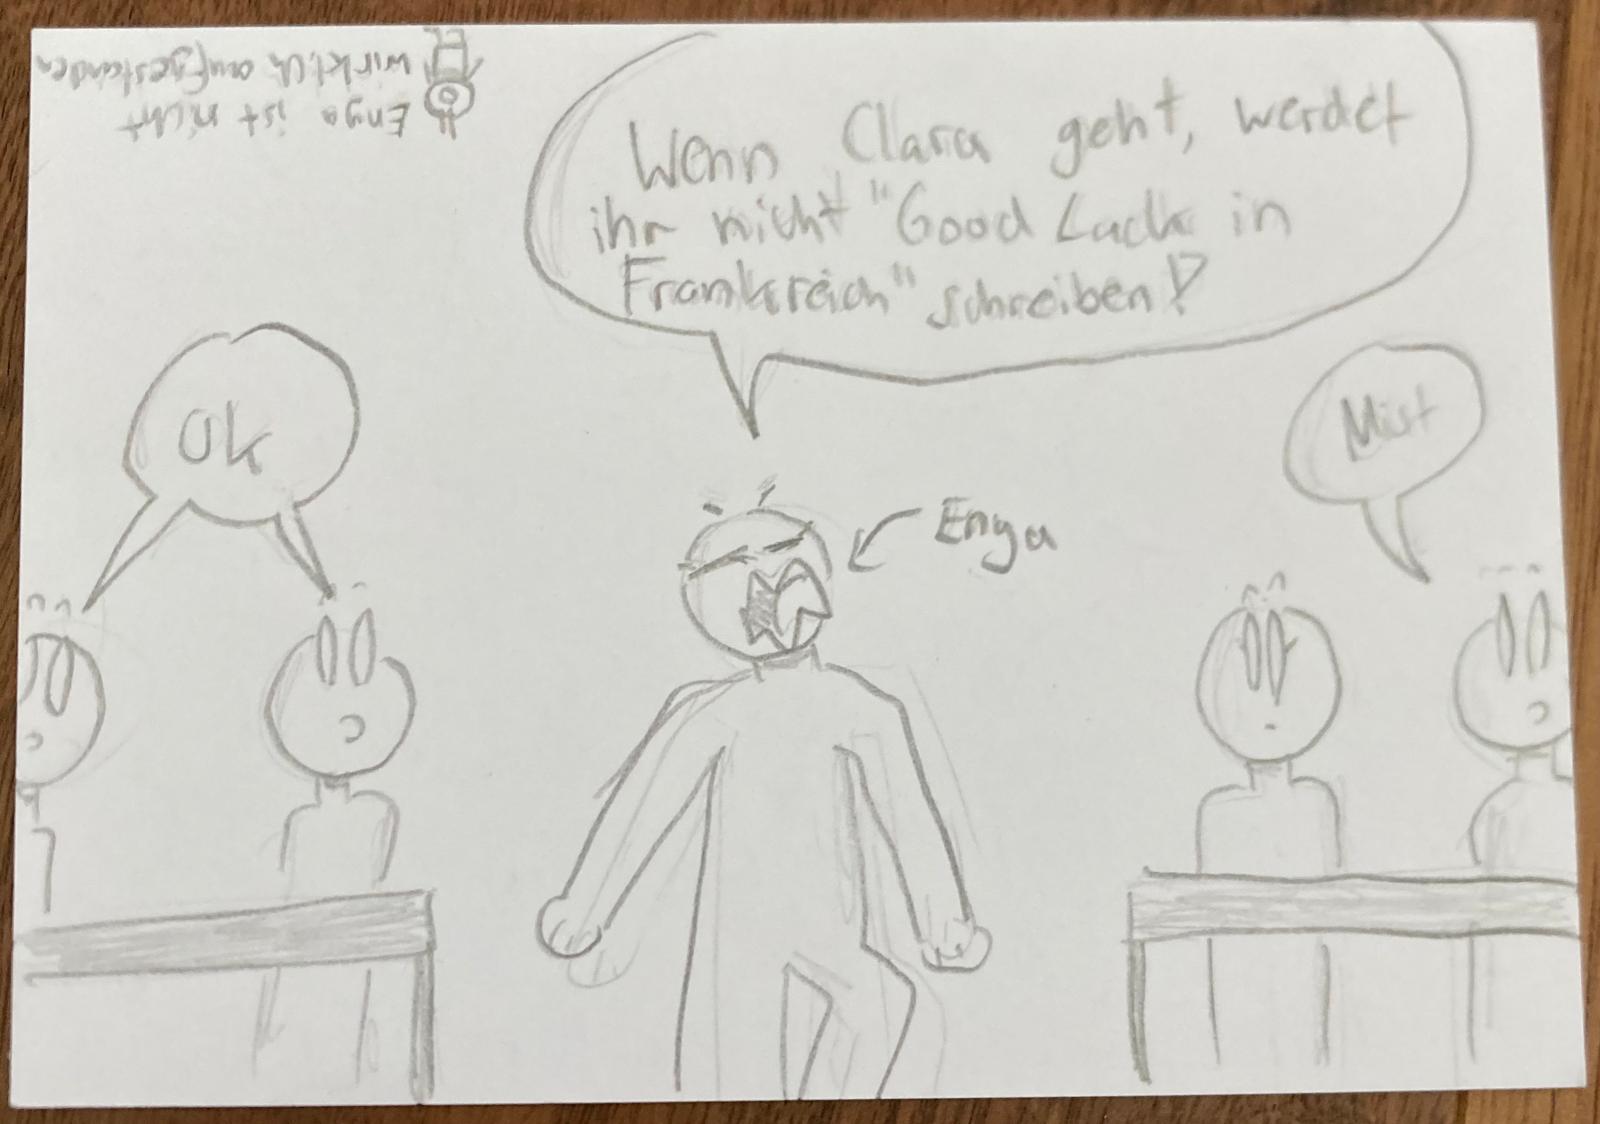 Enga ist nicht
wirklich aufgestanden
Wenn Clara geht, werdet
ihr nicht "Good Luck in
Frankreich" schreiben!?
Ok
Mist
Enya